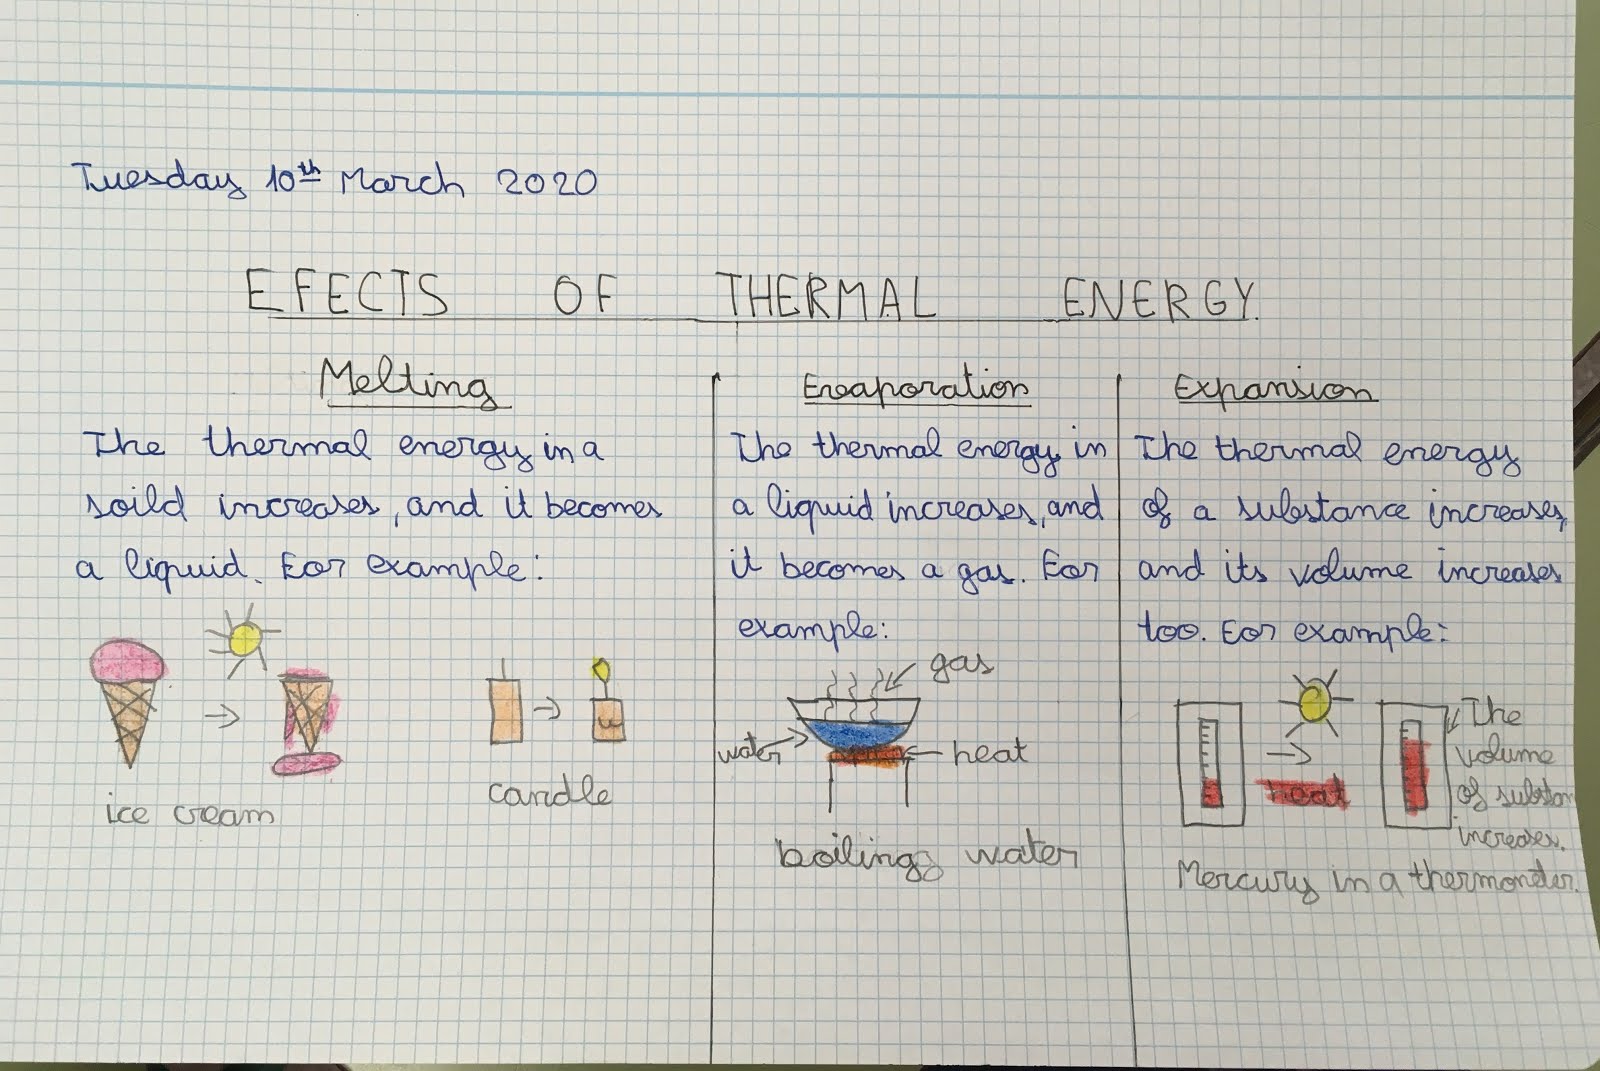 Tuesday 10th March 2020
EFECTS OF THERMAL ENERGY.
Melting
The thermal energy in a
soild increases, and it becomes
a liquid. For example:
ice cream
candle
Evaporation
The thermal energy in
a liquid increases, and
it becomes a gas. For
example:
gas
water
heat
boiling water
Expansion
The thermal energy
of a substance increases,
and its volume increases
too. For example:
heat
The
volume
of substan
increases.
Mercury in a thermometer.